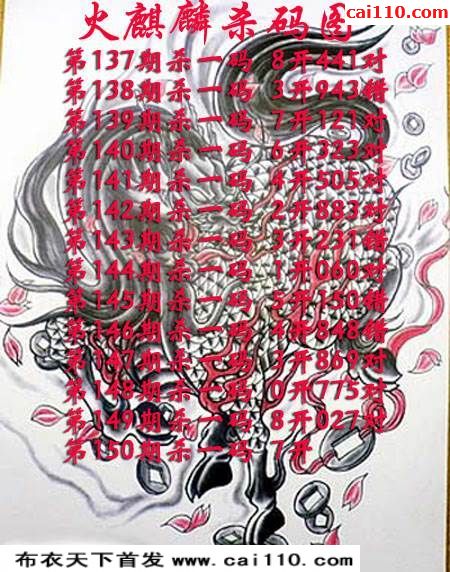 cai110.com
火麒麟杀码图
第137期杀一码 8开441对
第138期杀一码 3开943错
第139期杀一码 7开121对
第140期杀一码 6开323对
第141期杀一码 4开505对
第142期杀一码 2开883对
第143期杀一码 3开231错
第144期杀一码 1开060对
第145期杀一码 5开150错
第146期杀一码 4开848错
第147期杀一码 3开869对
第148期杀一码 0开775对
第149期杀一码 8开027对
第150期杀一码 7开
布衣天下首发 www.cai110.com